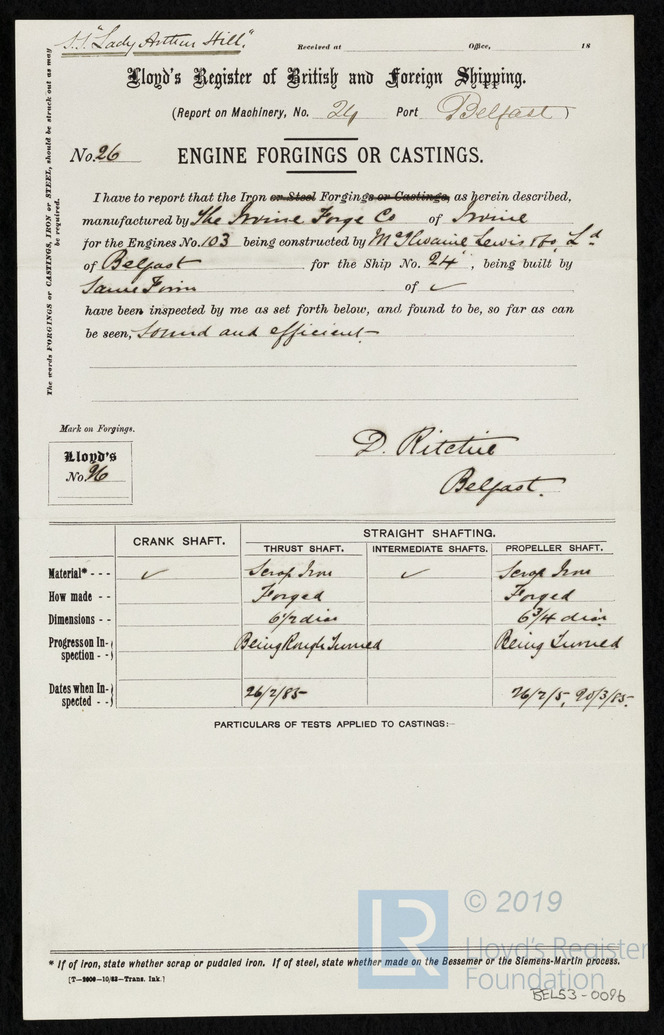 S.S. "Lady Arthur Hill."
Received at Office, 18
Lloyd's Register of British and Foreign Shipping.
(Report on Machinery, No. 24 Port Belfast)
No. 26 ENGINE FORGINGS OR CASTINGS.
The words FORGINGS or CASTINGS, IRON or STEEL, should be struck out as may
be required.
I have to report that the Iron or Steel Forgings or Castings, as herein described,
manufactured by The Irvine Forge Co of Irvine
for the Engines No. 103 being constructed by McIlwaine Lewis & Co, Ld
of Belfast for the Ship No. 24, being built by
Same Firm of ✓
have been inspected by me as set forth below, and found to be, so far as can
be seen, sound and efficient
Mark on Forgings.
Lloyd's
No. 96
D. Ritchie
Belfast.
CRANK SHAFT. STRAIGHT SHAFTING.
THRUST SHAFT. INTERMEDIATE SHAFTS. PROPELLER SHAFT.
Material* - - - ✓ Scrap Iron ✓ Scrap Iron
How made - - Forged Forged
Dimensions - - 6 1/2 dia 6 3/4 dia
Progress on In-
spection - - Being Rough Turned Being Turned
Dates when In-
spected - - 26/2/85 26/2/5, 20/3/85.
PARTICULARS OF TESTS APPLIED TO CASTINGS:—
LR © 2019
Lloyd's Register
Foundation
* If of iron, state whether scrap or pudaled iron. If of steel, state whether made on the Bessemer or the Siemens-Martin process.
[T—2000—10/83—Trans. Ink.]
BEL53-0096